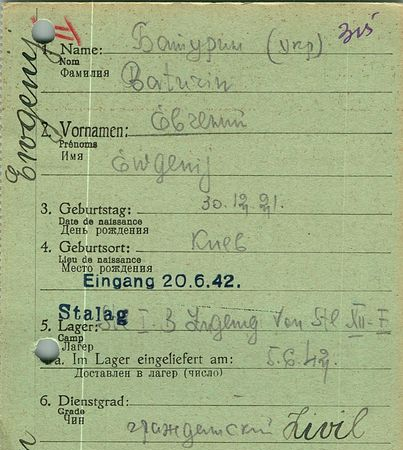 Ewgenij
II
1. Name: Батурин (укр)
Nom
Фамилия
Baturin
2. Vornamen: Евгений
Prénoms
Имя
Ewgenij
3. Geburtstag: 30.12.21.
Date de naissance
День рождения
4. Geburtsort: Киев
Lieu de naissance
Место рождения
Eingang 20.6.42.
Stalag
5. Lager: I B Zugang von Stl XII-F
Camp
Лагер
a. Im Lager eingeliefert am: 5.6.42.
Доставлен в лагер (число)
6. Dienstgrad:
Grade
Чин
гражданский Zivil